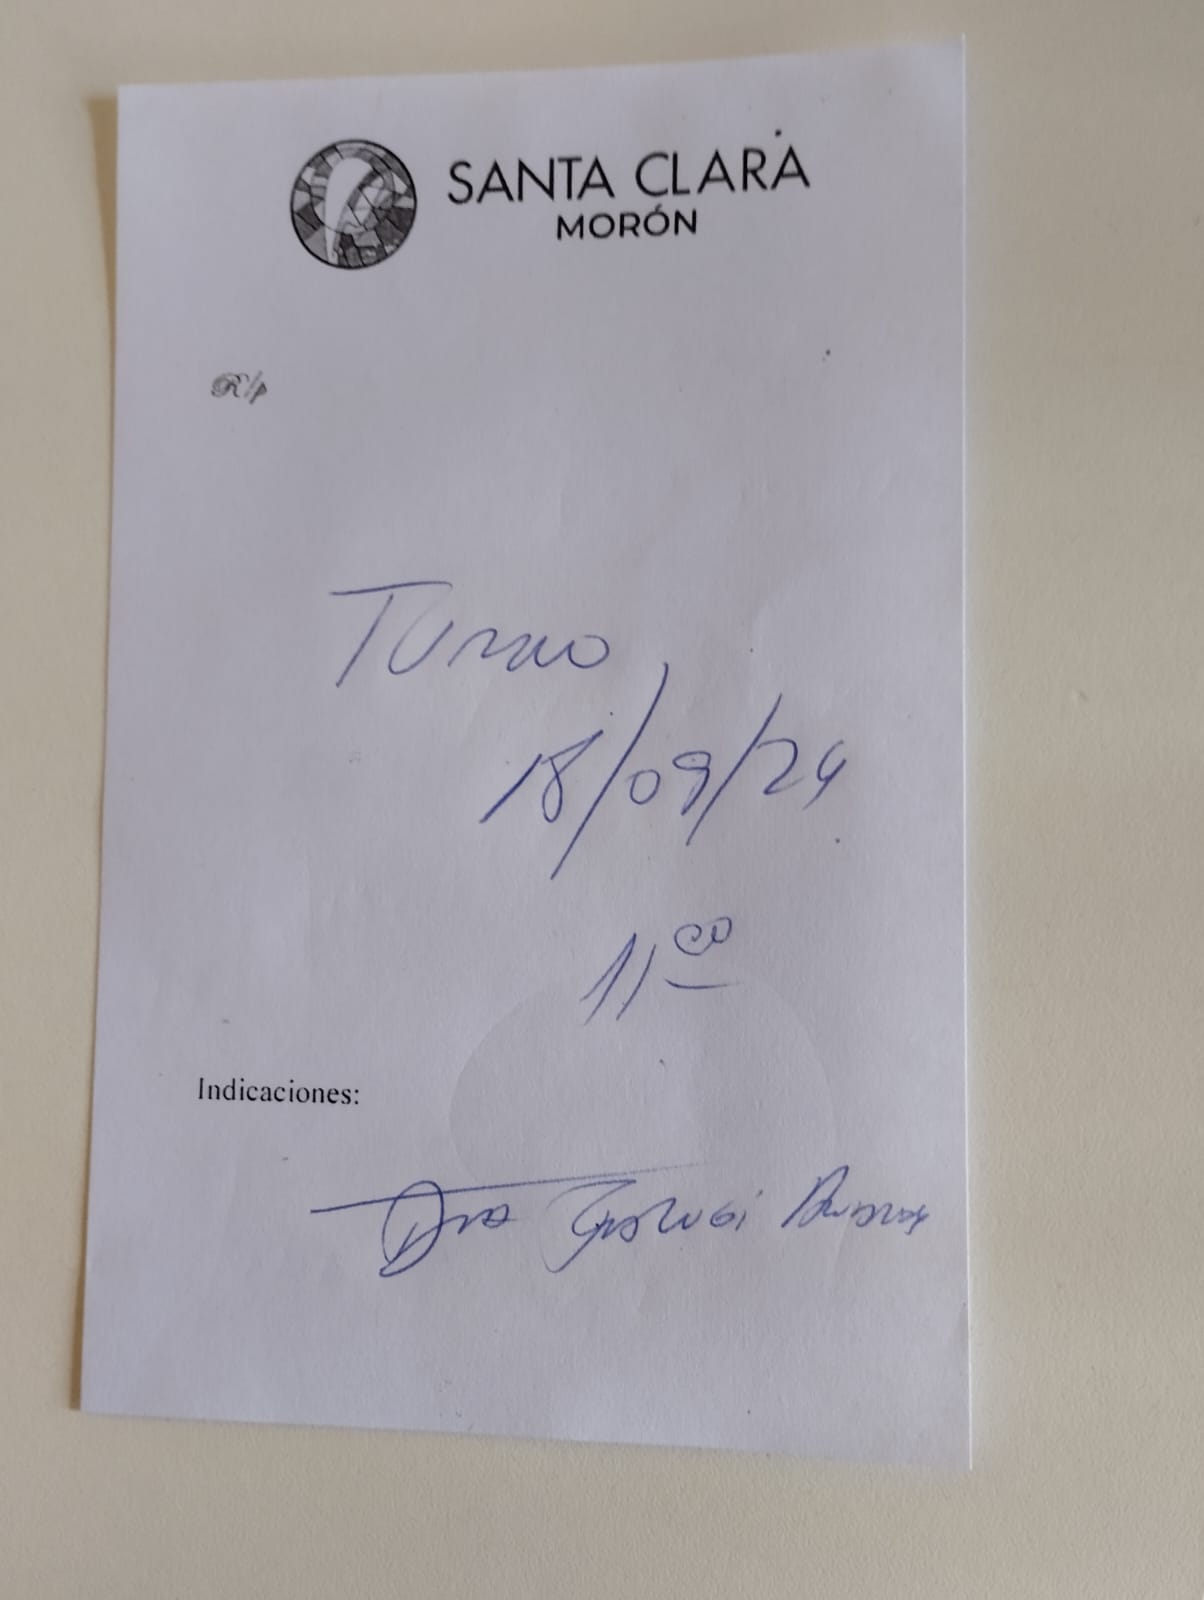 SANTA CLARA
MORÓN
R/p
Turno
18/09/24
11 00
Indicaciones:
Dra